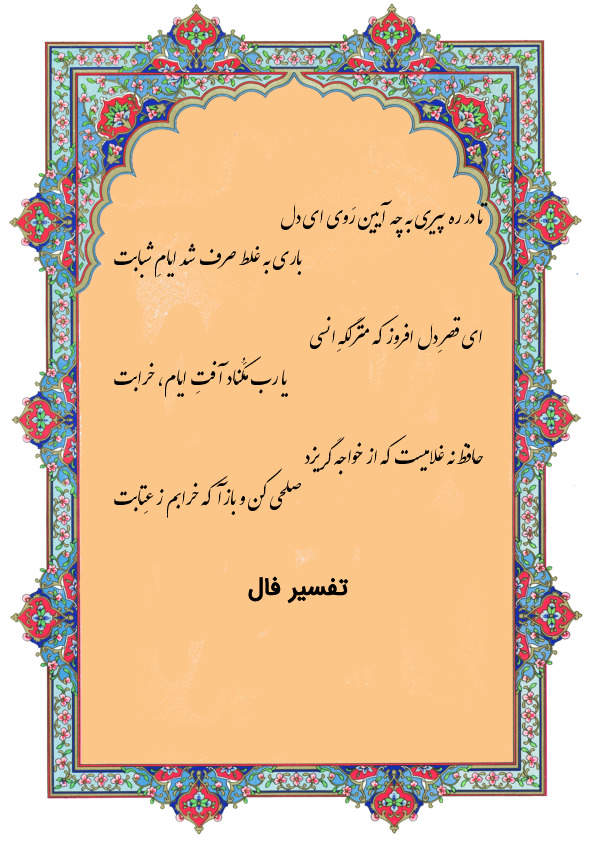 تا در ره پیری به چه آیین رَوی ای دل
باری به غلط صرف شد ایامِ شبابت
ای قصرِ دل افروز که منزلگهِ انسی
یا رب مَکُناد آفتِ ایام، خرابت
حافظ نه غلامیست که از خواجه گریزد
صلحی کن و بازآ که خرابم ز عِتابت
تفسیر فال